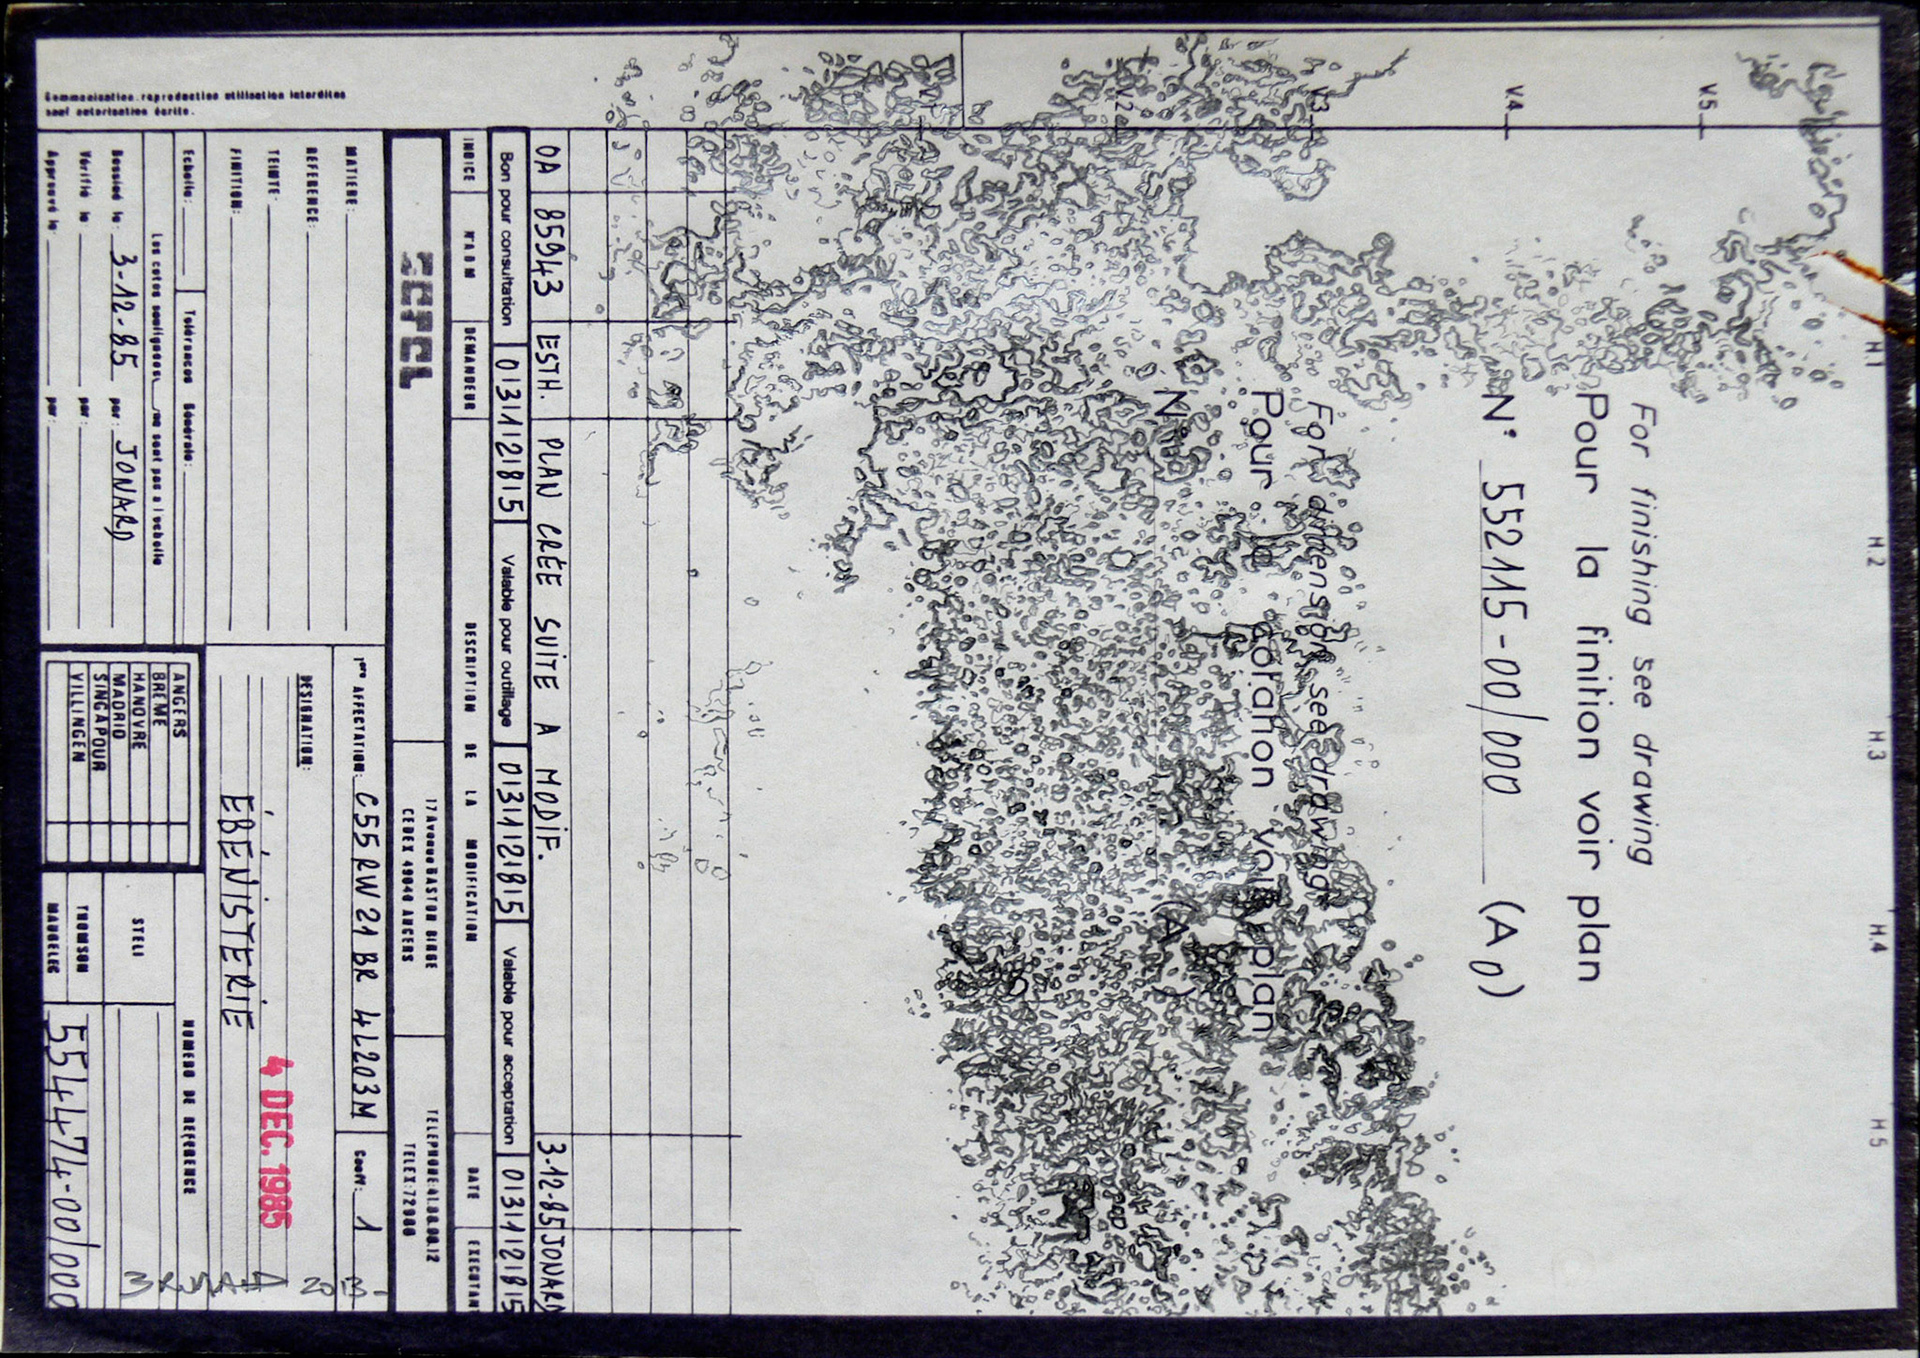 For finishing see drawing
Pour la finition voir plan
N° 552115-00/000 (A0)
For dimensions see drawing
Pour la cotation voir plan
N° (A )
V.2
V.3
V.4
V.5
H.1
H.2
H.3
H.4
H.5
OA 85943 ESTH. PLAN CRÉE SUITE A MODIF. 3-12-85 JONARD
Bon pour consultation 031285 Valable pour outillage 031285 Valable pour acceptation 031285
INDICE N°ADM DEMANDEUR DESCRIPTION DE LA MODIFICATION DATE EXECUTANT
17 Avenue GASTON BIRGE
CEDEX 49040 ANGERS
MATIERE:
REFERENCE:
TEINTE:
FINITION:
1ère AFFECTATION: C55RW21BR 4L203M
Coeff: 1
DESIGNATION:
EBENISTERIE
4 DEC. 1985
Echelle: Tolérances Générale:
Les cotes soulignées ne sont pas a l'echelle
Dessiné le: 3-12-85 par: JONARD
Vérifié le: par:
Approuvé le: par:
ANGERS
BREME
HANOVRE
MADRID
SINGAPOUR
VILLINGEN
STELI
THOMSON
NUMERO DE REFERENCE
5544474-00/000
Communication, reproduction utilisation interdites
sauf autorisation écrite.